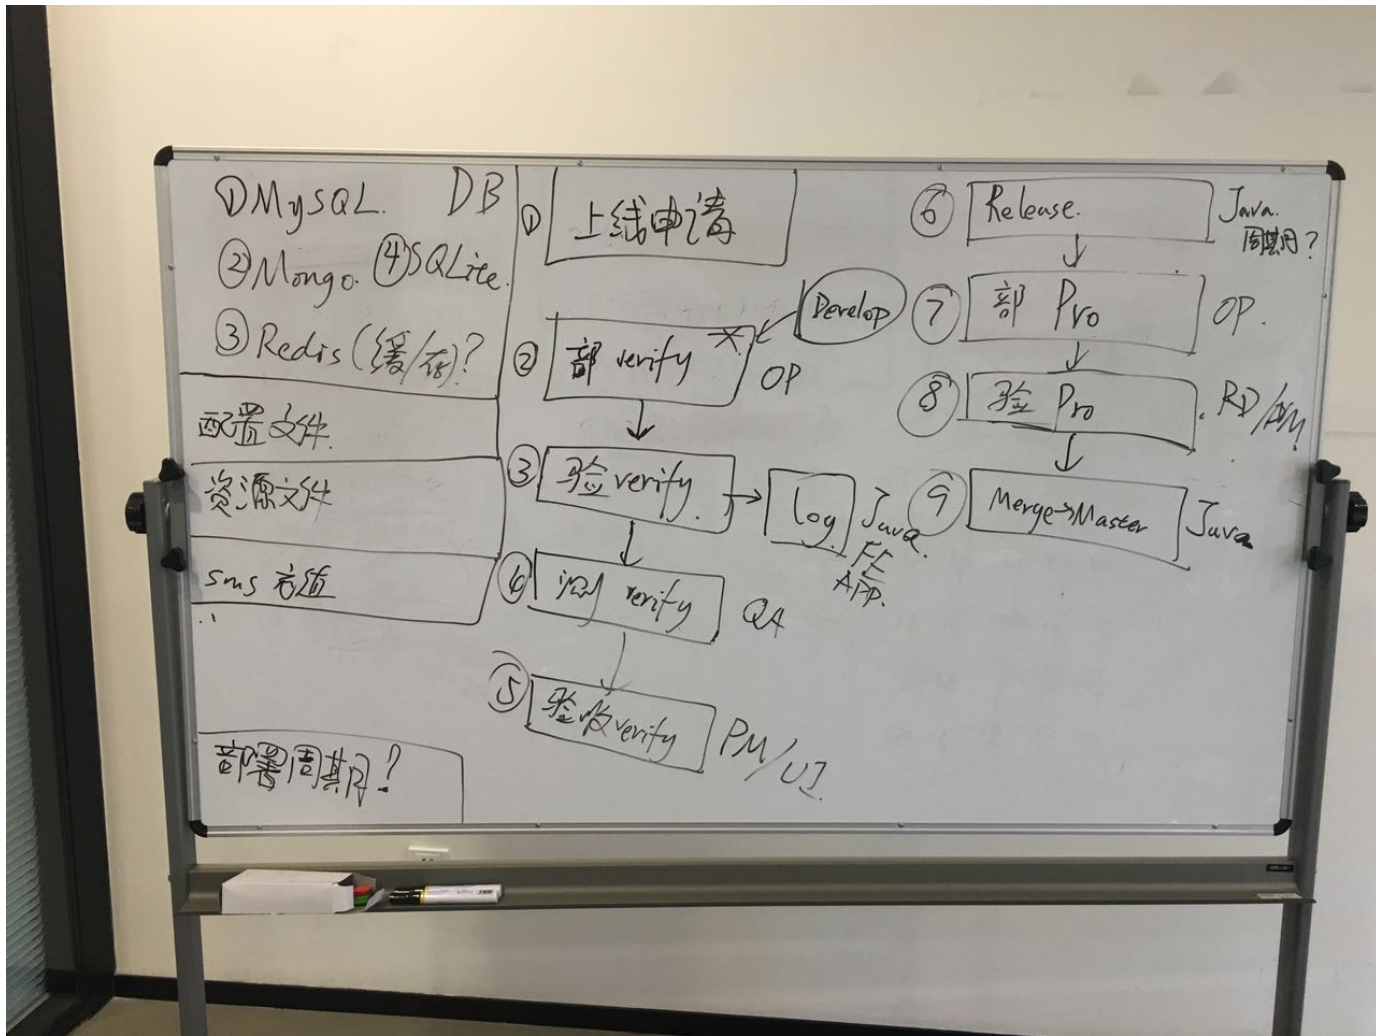 ①MySQL. DB
②Mongo. ④SQLite.
③Redis (缓/存)?
配置文件.
资源文件
sms 充值
部署周期?
① 上线申请
Develop
② 部 verify OP
③ 验 verify
log Java.
FE
APP.
④ 测 verify QA
⑤ 验收verify PM/UI.
⑥ Release. Java.
周期?
⑦ 部 Pro OP.
⑧ 验 Pro RD/PM.
⑨ Merge→Master Java